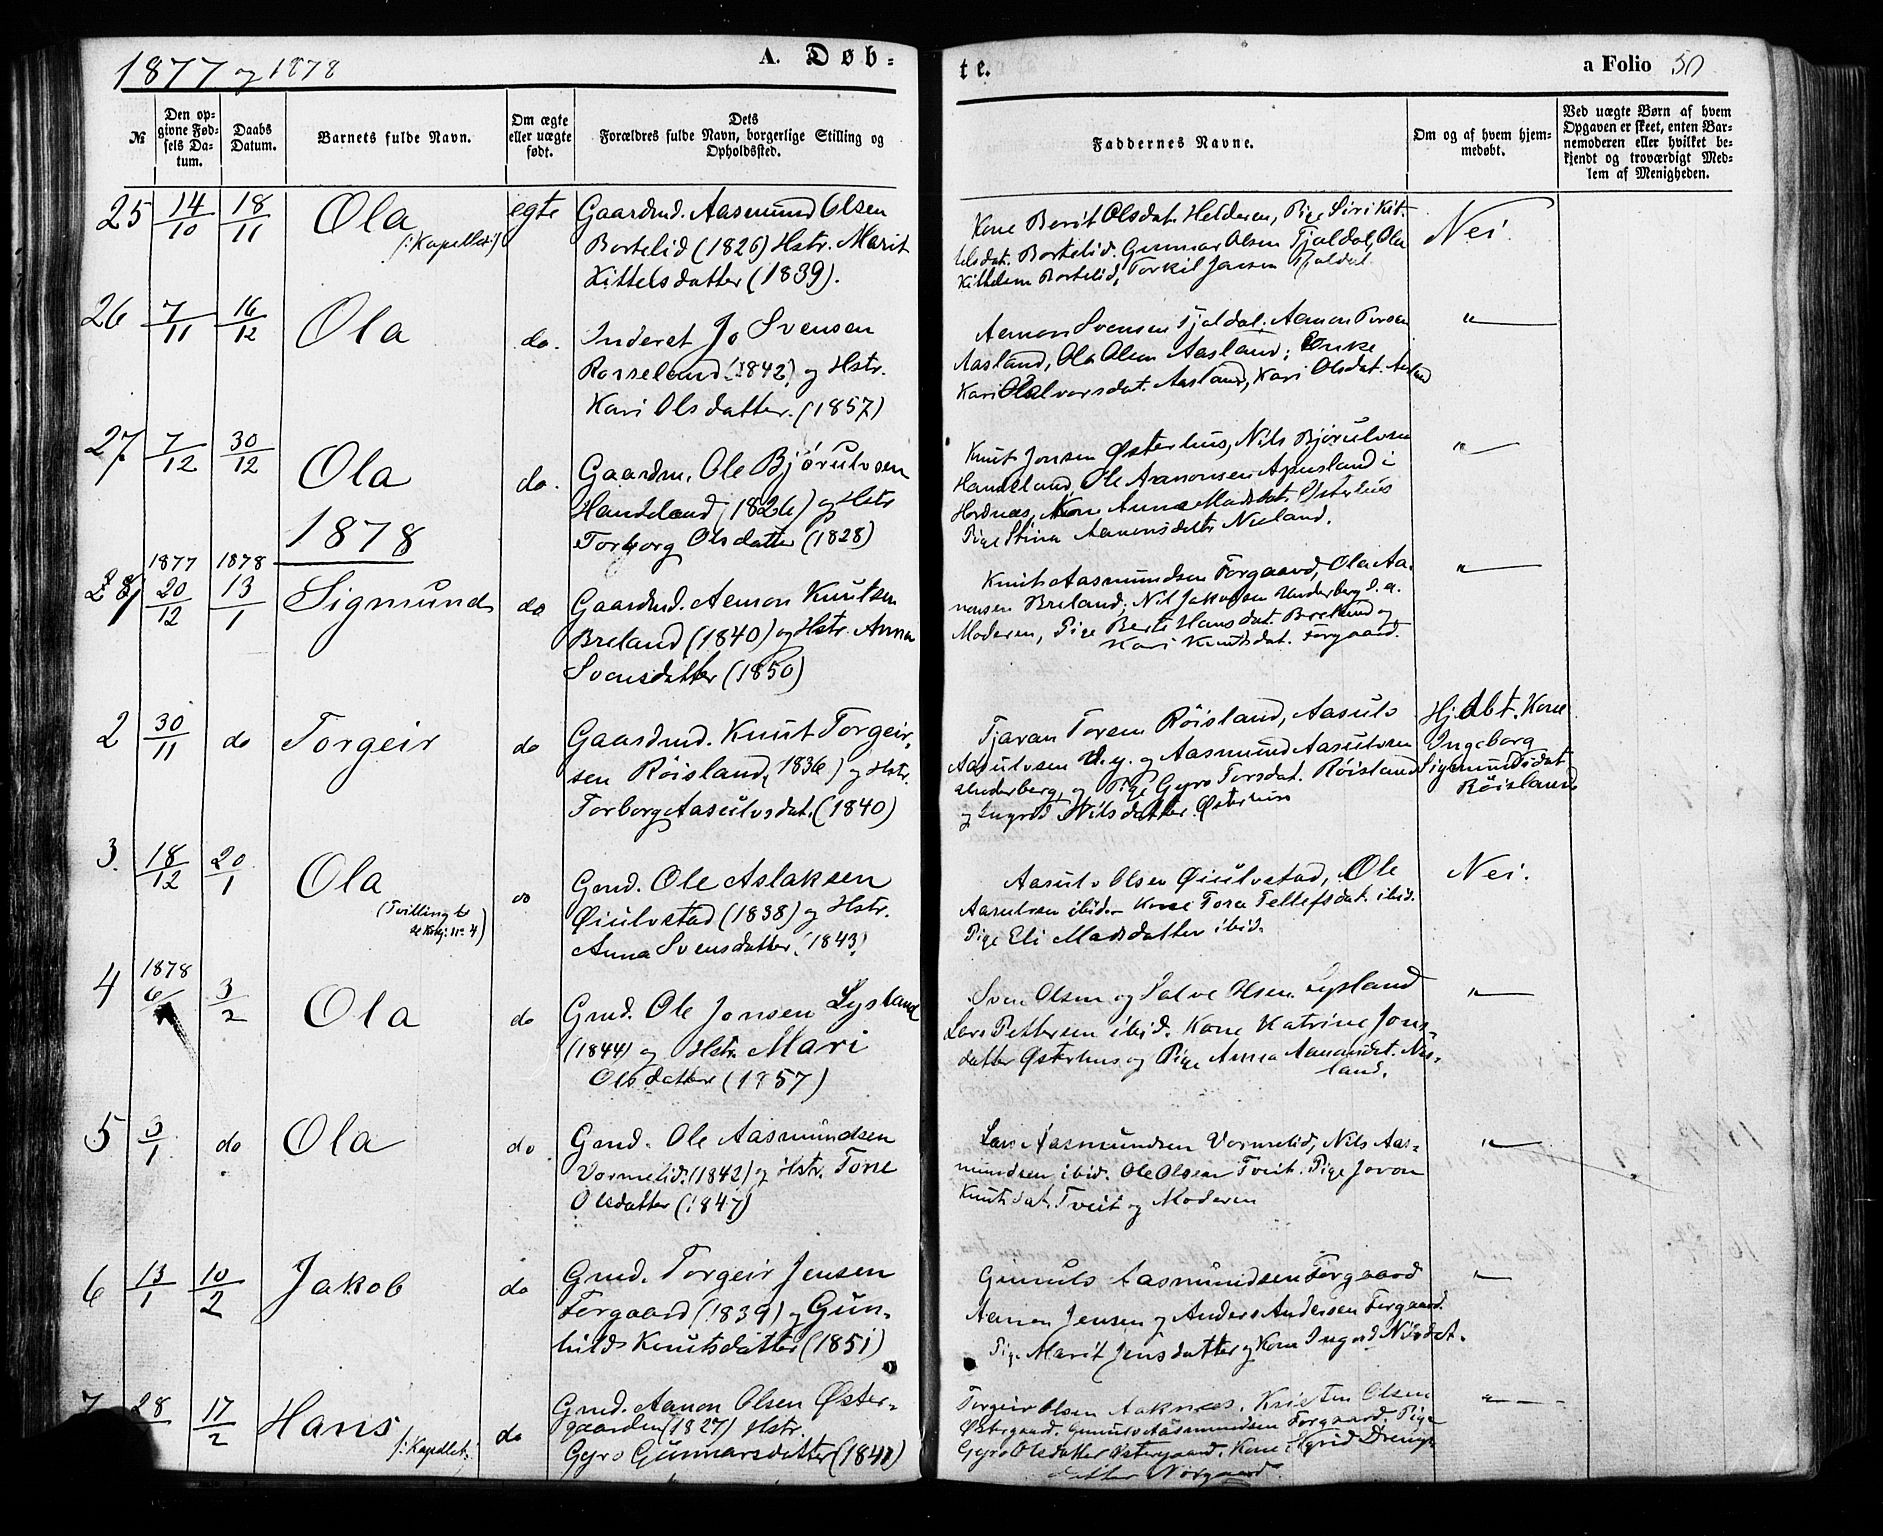 1877 og 1878
A. Døb-
te.
a Folio 50.
№
Den op-
givne Fød-
sels Da-
tum.
Daabs
Datum.
Barnets fulde Navn.
Om ægte
eller uægte
født.
Dets
Forældres fulde Navn, borgerlige Stilling og
Opholdssted.
Faddernes Navne.
Om og af hvem hjem-
medøbt.
Ved uægte Børn af hvem
Opgaven er skeet, enten Bar-
nemoderen eller hvilket be-
kjendt og troværdigt Med-
lem af Menigheden.
25 14/10 18/11 Ola (:Kapellet:) egte
Gaardmd. Aasmund Olsen
Bortelid (1826) Hstr. Marit
Kittelsdatter (1839).
Kone Berit Olsdat. Heldesen, Pige Siri Kit-
telsdat. Bortelid. Gunnar Olsen Fjaldal, Ola
Kittelsen Bortelid, Torkil Jensen Fjaldal
Nei.
26 7/11 16/12 Ola do.
Inderst Jo Svensen
Rosseland (1842) og Hstr.
Kari Olsdatter. (1857)
Aanon Svensen Fjaldal. Aanon Torsen
Aasland, Ola Olsen Aasland; Enke
Kari Olalvorsdat. Aasland, Kari Olsdat. Aasland
"
27 7/12 30/12 Ola do.
Gaardm. Ole Bjørulvsen
Handeland (1826) og Hstr
Torborg Olsdatter (1828)
Knut Jonsen Østerhus, Nils Bjørulvsen
Handeland, Ole Aanonsen
Kone Anne Madsdat. Østerhus
Pige Stina Aanensdatter Nieland.
"
1878
1877 1878
1 20/12 13/1 Sigmund do
Gaardmd. Aanon Knutsen
Breland (1840) og Hstr. Anna
Svensdatter (1850)
Knut Aasmundsen Forgaard, Ola Aa-
nonsen Breland; Nil Jakobsen Underberg
Moderen, Pige Berte Hansdat. Breland og
Kari Knutsdat. Forgaard.
"
2 30/11 do Torgeir do
Gaardmd. Knut Torgeir-
sen Röisland, (1836) og Hstr.
Torborg Aasulvsdat. (1840)
Tjæran Toresen Röisland, Aasulv
Aasulvsen d. y. og Aasmund Aasulvsen
Underberg, og Pige Gyro Torsdat. Röisland
og Ingrid Nilsdatter Østerhus
Hj.dbt. Kone
Ingeborg
Sigmundsdat
Röisland
3. 18/12 20/1 Ola do
(Tvilling
4)
Gmd. Ole Aslaksen
Øiulvstad (1838) og Hstr.
Anna Svensdatter. (1843)
Aasulv Olsen Øiulvstad, Ole
Aasulvsen ibid. Kone Tora Tellefsdat. ibid.
Pige Eli Madsdatter ibid.
Nei.
1878
4 6/1 3/2 Ola do
Gmd. Ole Jonsen Lysland
(1844) og Hstr. Mari
Olsdatter (1857)
Sven Olsen og Salve Olsen Lysland
Lars Pettersen ibid. Kone Katrine Jons-
datter Østerhus og Pige Anna Aanondat. Nes-
land.
"
5 3/1 do Ola do.
Gmd. Ole Aasmundsen
Vormelid. (1842) og Hstr. Tone
Olsdatter (1847)
Lars Aasmundsen Vormelid, Nils Aas-
mundsen ibid. Ole Olsen Tveit. Pige Joron
Knutsdat. Tveit og Moderen
"
6 13/1 10/2 Jakob do
Gmd. Torgeir Jensen
Forgaard (1839) og Gun-
hild Knutsdatter (1851)
Gunulv Aasmundsen Forgaard
Aanon Jensen og Anders Andersen Forgaard.
Pige Marit Jensdatter og Kone Ingerd Nilsdat.
"
7 28 17/2 Hans (:Kapellet:) do
Gmd. Aanon Olsen Øster-
gaarden (1827) Hstr.
Gyro Gunnarsdatter (1840)
Torgeir Olsen Aaknæs. Kristen Olsen
Østergaard. Gunulv Aasmundsen Forgaard. Pige
Gyro Olsdatter Østergaard. Kone Sigrid Dreng-
datter Norgaard.
"